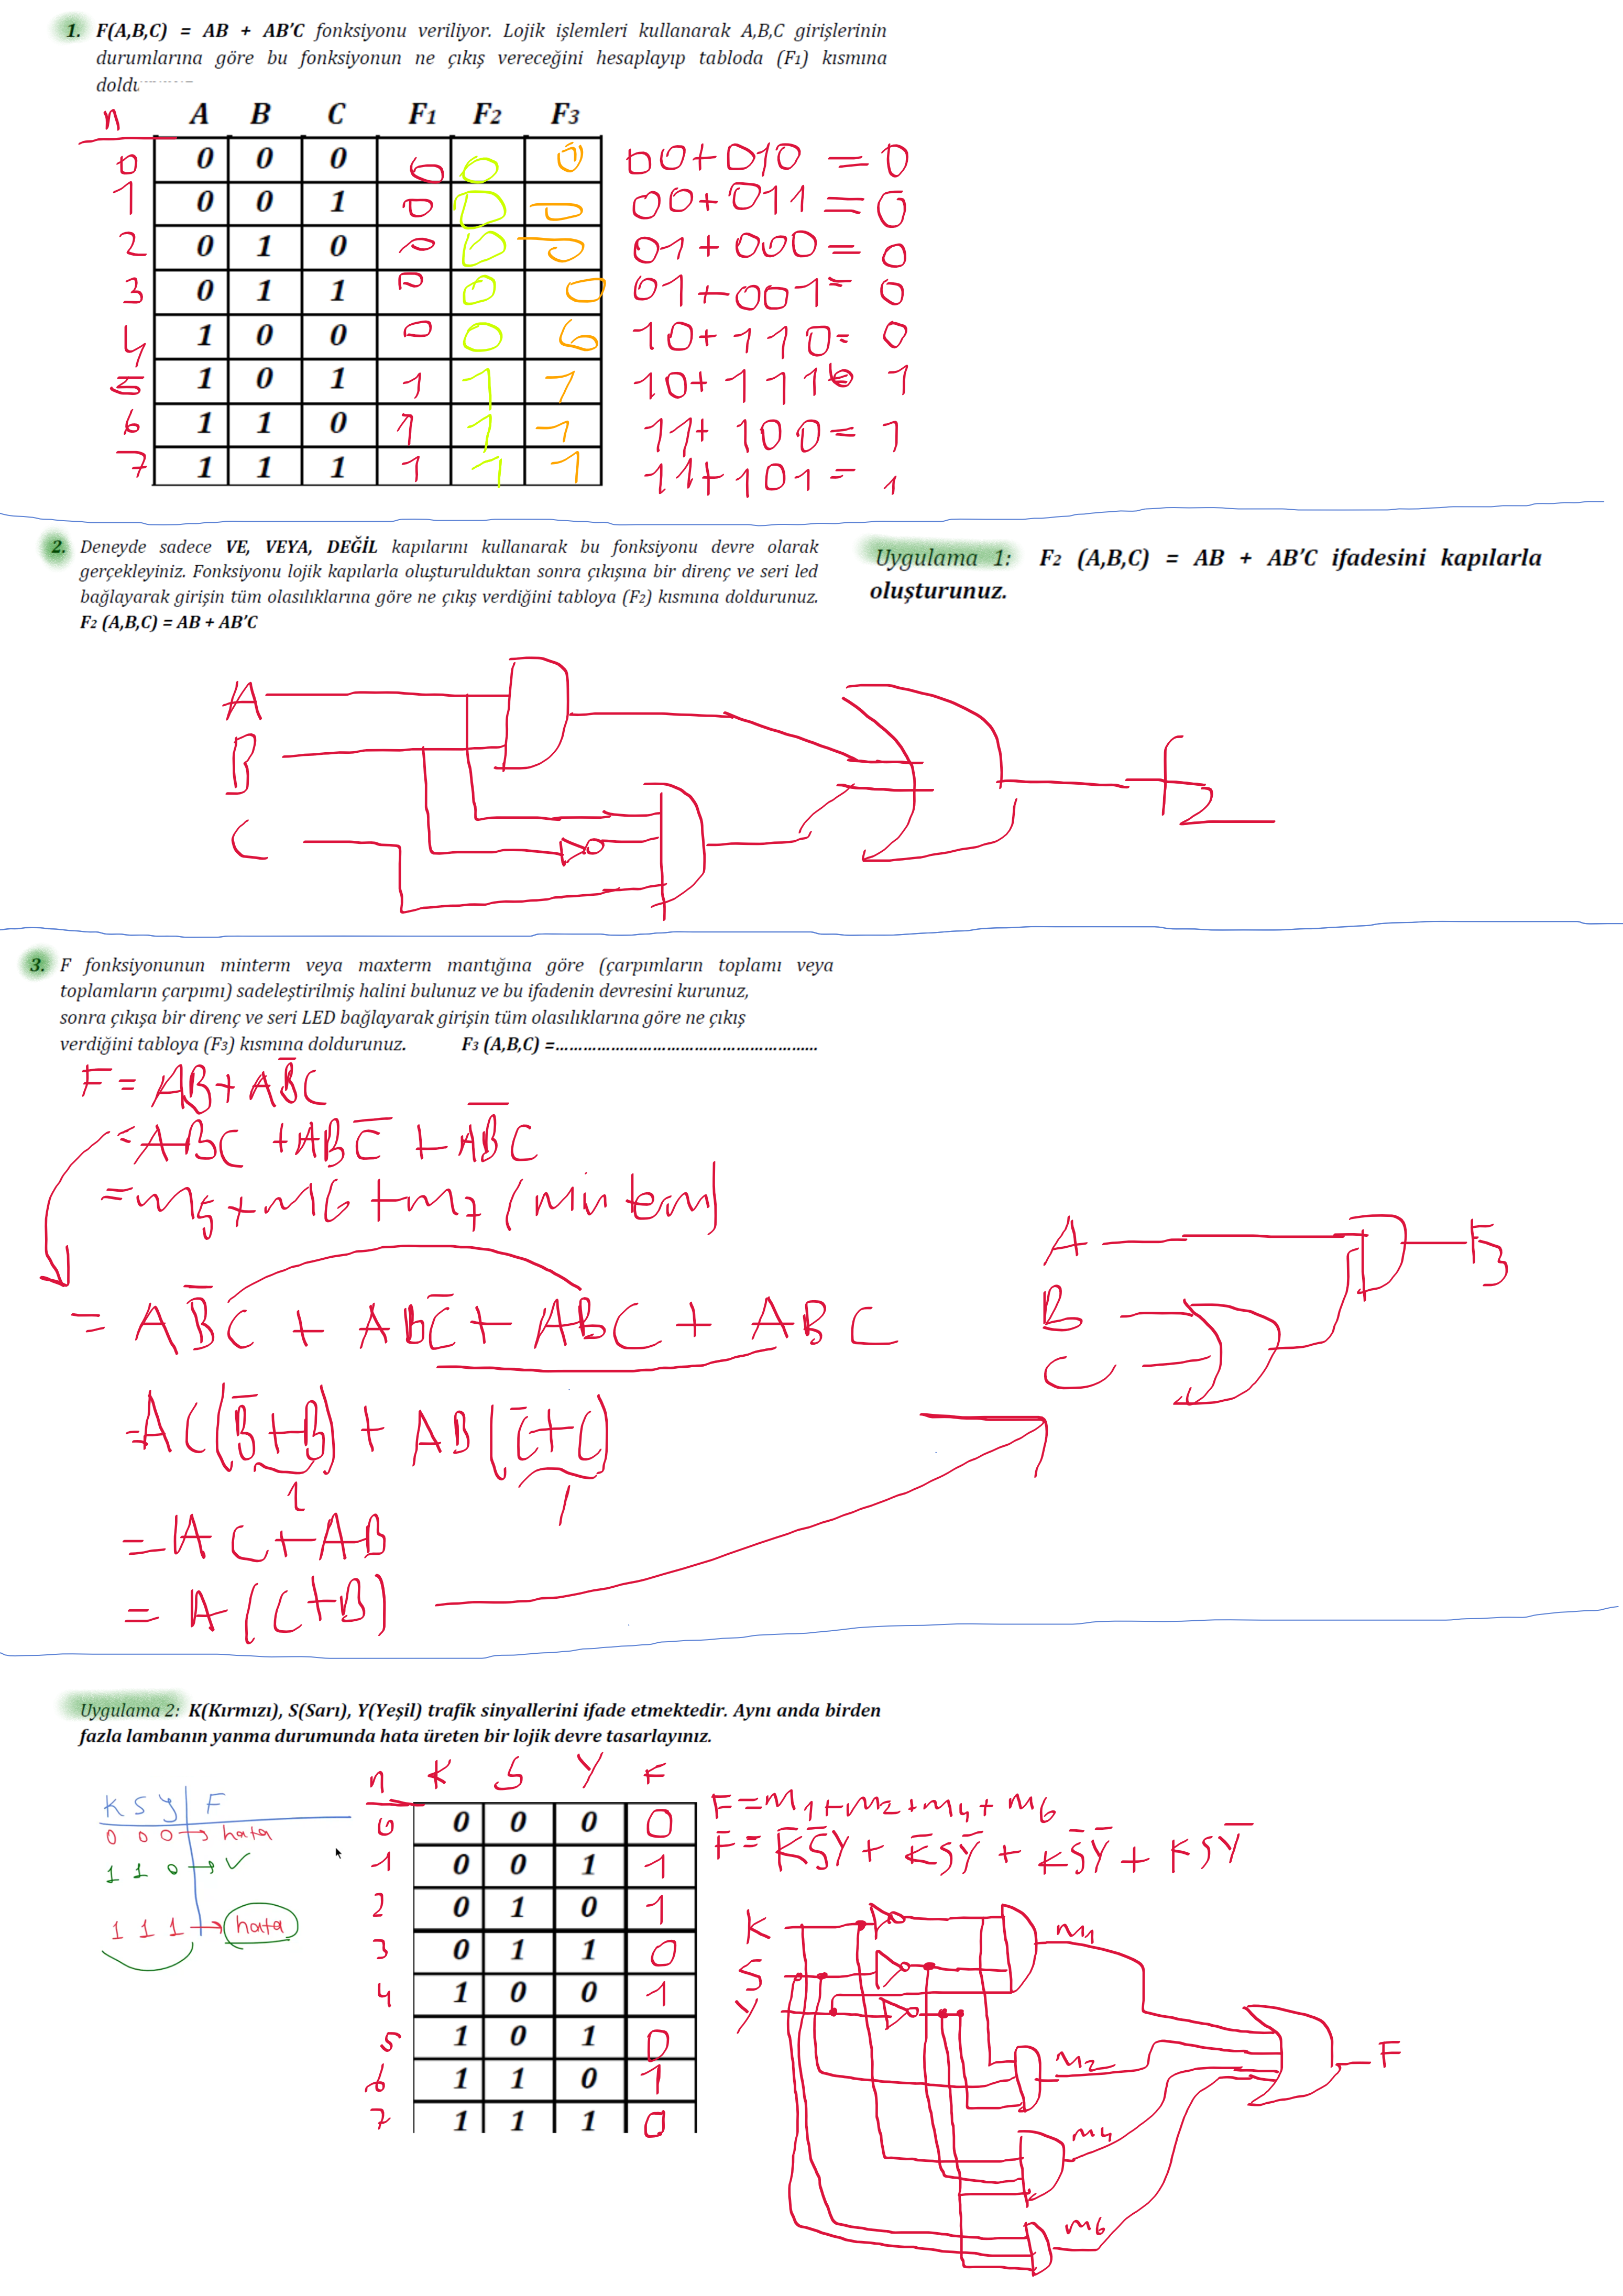 1. F(A,B,C) = AB + AB'C fonksiyonu veriliyor. Lojik işlemleri kullanarak A,B,C girişlerinin
durumlarına göre bu fonksiyonun ne çıkış vereceğini hesaplayıp tabloda (F1) kısmına
n A B C F1 F2 F3
0 0 0 0 0 0 0 00+010 = 0
1 0 0 1 0 0 0 00+011 = 0
2 0 1 0 0 0 0 01+000 = 0
3 0 1 1 0 0 0 01+001= 0
4 1 0 0 0 0 0 10+110= 0
5 1 0 1 1 1 1 10+111= 1
6 1 1 0 1 1 1 11+100= 1
7 1 1 1 1 1 1 11+101= 1
2. Deneyde sadece VE, VEYA, DEĞİL kapılarını kullanarak bu fonksiyonu devre olarak
gerçekleyiniz. Fonksiyonu lojik kapılarla oluşturulduktan sonra çıkışına bir direnç ve seri led
bağlayarak girişin tüm olasılıklarına göre ne çıkış verdiğini tabloya (F2) kısmına doldurunuz.
F2 (A,B,C) = AB + AB'C
Uygulama 1: F2 (A,B,C) = AB + AB'C ifadesini kapılarla
oluşturunuz.
A
B
C
F2
3. F fonksiyonunun minterm veya maxterm mantığına göre (çarpımların toplamı veya
toplamların çarpımı) sadeleştirilmiş halini bulunuz ve bu ifadenin devresini kurunuz,
sonra çıkışa bir direnç ve seri LED bağlayarak girişin tüm olasılıklarına göre ne çıkış
verdiğini tabloya (F3) kısmına doldurunuz. F3 (A,B,C) =......................................................
F = AB + AB̅C
= ABC + ABC̅ + AB̅C
= m5 + m6 + m7 (minterm)
= AB̅C + ABC̅ + ABC + ABC
= AC(B̅+B) + AB(C̅+C)
1 1
= AC + AB
= A(C+B)
A
B
C
F3
Uygulama 2: K(Kırmızı), S(Sarı), Y(Yeşil) trafik sinyallerini ifade etmektedir. Aynı anda birden
fazla lambanın yanma durumunda hata üreten bir lojik devre tasarlayınız.
K S Y F
0 0 0 → hata
1 1 0 → ✓
1 1 1 → hata
n K S Y F
0 0 0 0 0
1 0 0 1 1
2 0 1 0 1
3 0 1 1 0
4 1 0 0 1
5 1 0 1 0
6 1 1 0 1
7 1 1 1 0
F = m1 + m2 + m4 + m6
F = K̅S̅Y + K̅SY̅ + KS̅Y̅ + KSY̅
K
S
Y
m1
m2
m4
m6
F